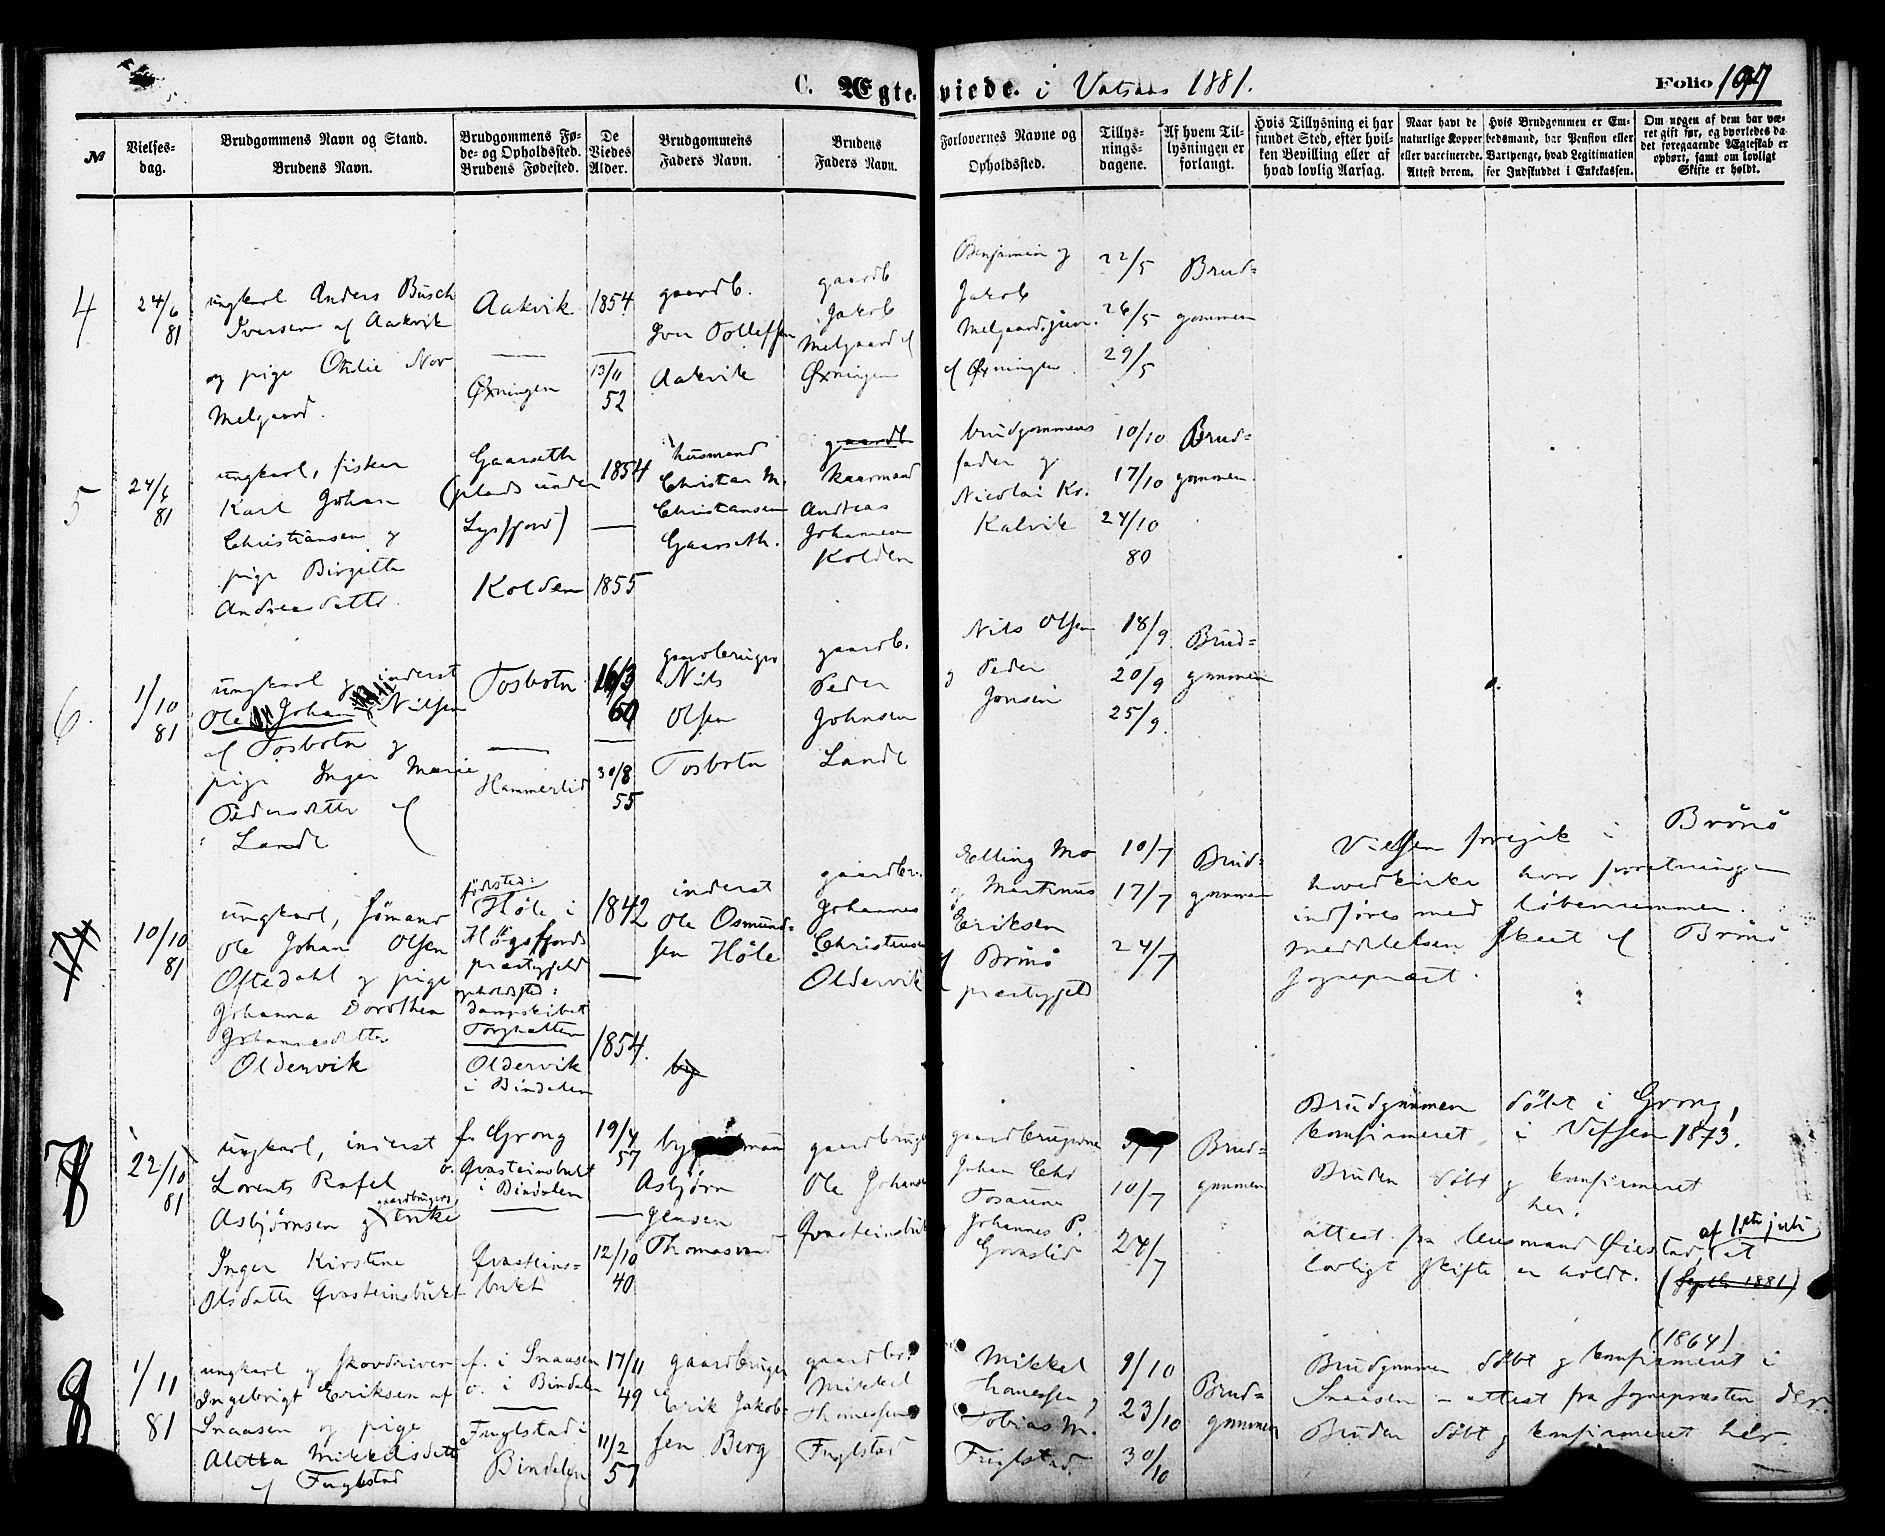 C. Ægteviede. i Vatsaas 1881.
Folio 197
№
Vielses-
dag.
Brudgommens Navn og Stand.
Brudens Navn.
Brudgommens Fø-
de- og Opholdssted.
Brudens Fødested.
De
Viedes
Alder.
Brudgommens
Faders Navn.
Brudens
Faders Navn.
Forlovernes Navne og
Opholdssted.
Tillys-
nings-
dagene.
Af hvem Til-
lysningen er
forlangt.
Hvis Tillysning ei har
fundet Sted, efter hvil-
ken Bevilling eller af
hvad lovlig Aarsag.
Naar havt de
naturlige Kopper
eller vaccinerede.
Attest derom.
Hvis Brudgommen er Em-
bedsmand, har Pension eller
Vartpenge, hvad Legitimation
for Indskuddet i Enkekassen.
Om nogen af dem har væ-
ret gift før, og hvorledes da-
det foregaaende Ægteskab er
ophørt, samt om lovligt
Skifte er holdt.
4
24/6
81
ungkarl Anders Busch
Iversen af Aakvik
og pige Otilie Nor
Melgaard.
Aakvik
Øxningen
1854
13/11
52
gaardb.
Iver Tollefsen
Aakvik
gaardb
Jakob
Melgaard af
Øxningen
Benjamin og
Jakob
Melgaard, jun.
af Øxningen.
22/5
26/5
29/5
Brud-
gommen
5
24/6
81
ungkarl, fisker
Karl Johan
Christiansen og
pige Birgitte
Andreasdatter.
Gaarseth
(plads under
Lysfjord)
Kolden
1854
1855
husmand
Christian M.
Christiansen
Gaarseth.
gaardb
kaarmand
Andreas
Johannesen
Kolden
brudgommens
fader og
Nicolai Kr.
Kalvik
10/10
17/10
24/10
80
Brud-
gommen.
6.
1/10
81
ungkarl og inderst
Ole Johan Nilsen
af Tosbotn og
pige Inger Marie
Pedersdatter af
Lande
Tosbotn
Hammerlid
16/3
60
30/8
55
gaardbruger
Nils
Olsen
Tosbotn
gaardb.
Peder
Johnsen
Lande
Nils Olsen
og Peder
Jonsen
18/9
20/9
25/9.
Brud-
gommen
7
10/10
81
ungkarl, sömand
Ole Johan Olsen
Oftedahl og pige
Johanna Dorothea
Johannesdatter
Oldervik
födested:
Høle i
Høgsfjords
præstegjeld
opholdsted:
dampskibet
Torghatten
Oldervik
i Bindalen
1842
1854.
inderst
Ole Osmund-
sen Høle
by
gaardbr.
Johannes
Christensen
Oldervik
Elling Mo
og Martinus
Eriksen
af Brönö
præstegjeld
10/7
17/7
24/7
Brud-
gommen
Vielsen foregik i Brönö
hovedkirke hvor forretningen
indføres med løbenummer.
meddelelsen skeet af Brönö
sognepræst.
8
22/10
81
ungkarl, inderst
Lorents Rafel
Asbjørnsen og gaardbrugers enke
Inger Kirstine
Olsdatter Qvasteinsbukt
f. Grong
o. Qvasteinsbukt
i Bindalen
Qvasteins-
bukt
19/4
57
12/10
40
Asbjørn
Jensen
Thomasvand
gaardbruger
Ole Johansen
Qvasteinsbukt
gaardbrugerne
Johan Chr
Tosaune
Johannes P.
Grønlid
10/7
24/7
Brud-
gommen
Brudgommen döbt i Grong,
konfirmeret i Vefsen 1873.
Bruden döbt og konfirmeret
her.
attest fra lensmand Øiestad, af 1ste juli at
lovligt skifte er holdt. (Septbr 1881)
8
1/11
81
ungkarl og skovdriver
Ingebrigt Eriksen af
Snaasen og pige
Aletta Mikkelsdatter
af Fuglstad
f. i Snaasen
o. i Bindalen
Fuglstad i
Bindalen
17/11
49
11/2
57
gaardbruger
Erik Jakob-
sen Berg
gaardbr.
Mikkel
Thomessen
Fuglstad
Mikkel
Thomessen og
Tobias M.
Fuglstad.
9/10
23/10
30/10
Brud-
gommen
Brudgommen döbt og konfirmeret (1864) i
Snaasen - attest fra sognepræsten der.
Bruden döbt og konfirmeret her.